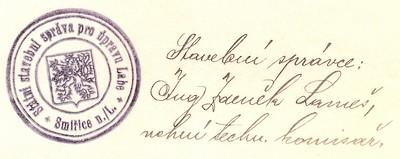 Státní stavební správa pro úpravu Labe
* Smiřice n./L. *
Stavební správce:
Ing Zdeněk Lameš,
vrchní techn. komisař.